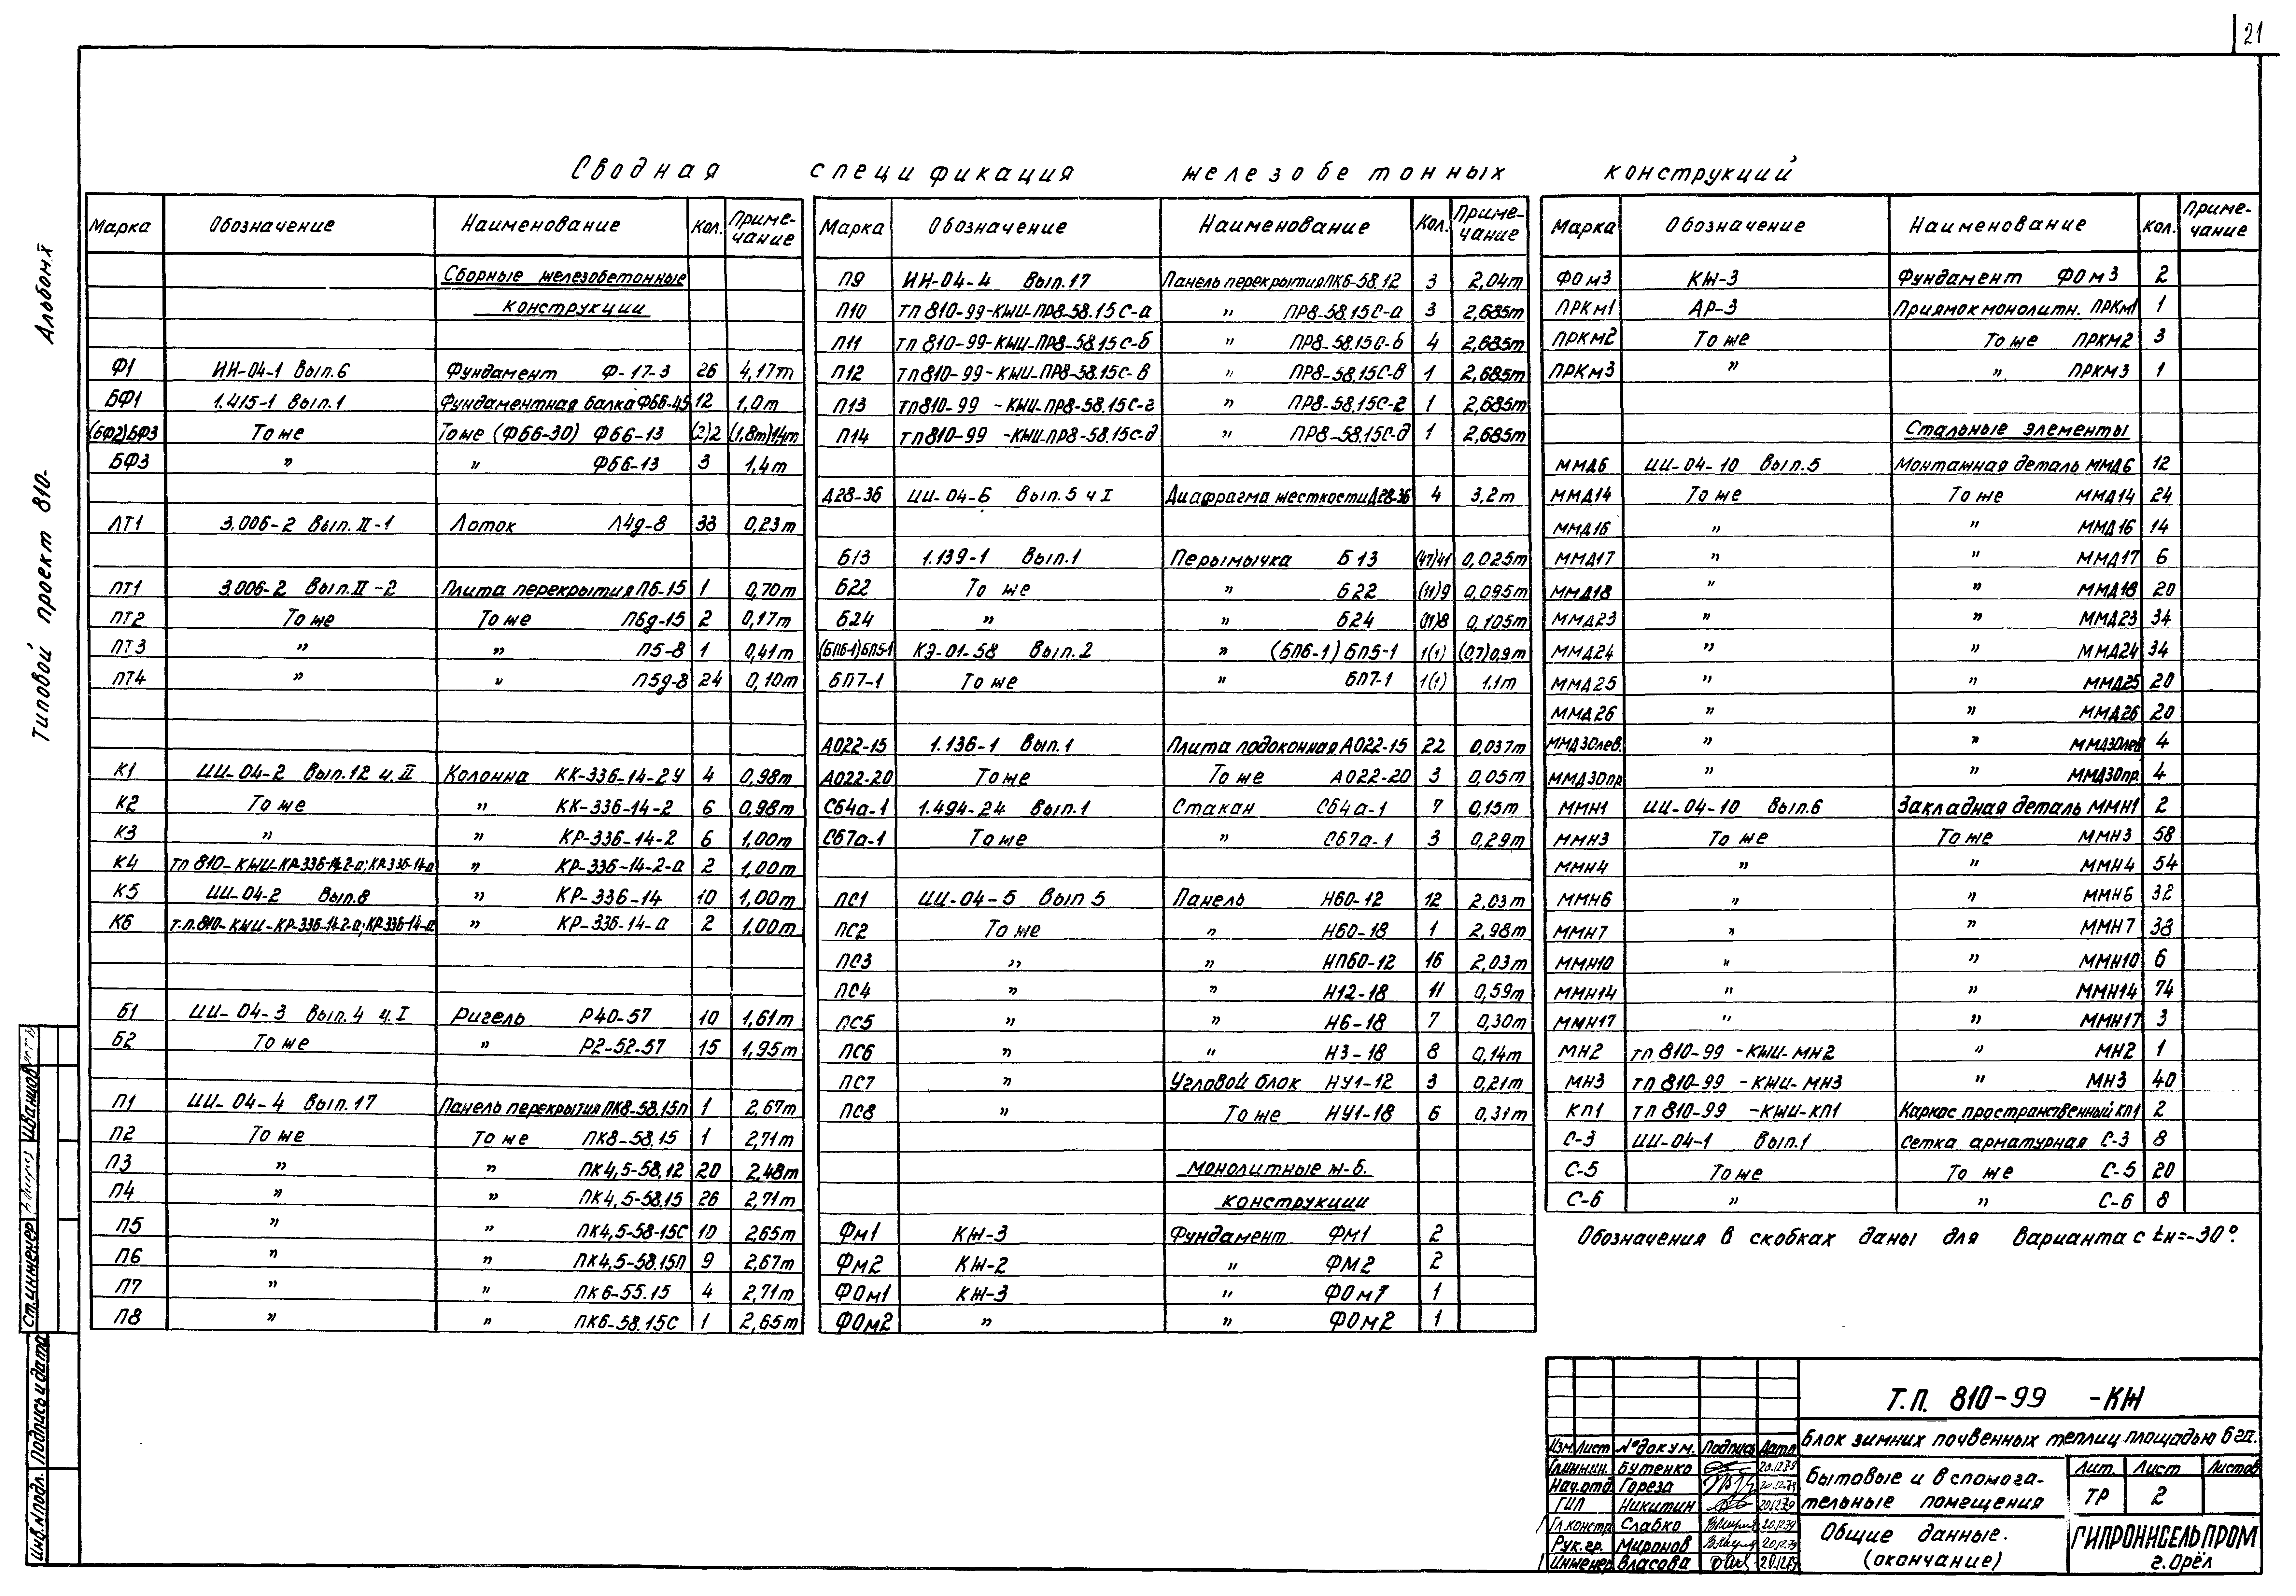 21
Сводная спецификация железобетонных конструкций
Марка Обозначение Наименование Кол. Приме-чание
Сборные железобетонные
конструкции
Ф1 ИИ-04-1 Вып.6 Фундамент Ф-17-3 26 4,17т
БФ1 1.415-1 Вып.1 Фундаментная балка ФБ6-45 12 1,0т
(БФ2)БФ3 То же То же (ФБ6-30) ФБ6-13 (2)2 (1,8т)1,4т
БФ3 " " ФБ6-13 3 1,4т
ЛТ1 3.006-2 Вып.II-1 Лоток Л4д-8 33 0,23т
ПТ1 3.006-2 Вып.II-2 Плита перекрытия П6-15 1 0,70т
ПТ2 То же То же П6д-15 2 0,17т
ПТ3 " " П5-8 1 0,41т
ПТ4 " " П5д-8 24 0,10т
К1 ИИ-04-2 Вып.12 ч.II Колонна КК-336-14-2У 4 0,98т
К2 То же " КК-336-14-2 6 0,98т
К3 " " КР-336-14-2 6 1,00т
К4 тп 810-КЖИ-КР-336-14-2-а;КР-336-14-а " КР-336-14-2-а 2 1,00т
К5 ИИ-04-2 Вып.8 " КР-336-14 10 1,00т
К6 т.п.810-КЖИ-КР-336-14-2-а;КР-336-14-а " КР-336-14-а 2 1,00т
Б1 ИИ-04-3 Вып.4 ч.I Ригель Р40-57 10 1,61т
Б2 То же " Р2-52-57 15 1,95т
П1 ИИ-04-4 Вып.17 Панель перекрытия ПК8-58.15п 1 2,67т
П2 То же То же ПК8-58.15 1 2,71т
П3 " " ПК4,5-58.12 20 2,48т
П4 " " ПК4,5-58.15 26 2,71т
П5 " " ПК4,5-58-15С 10 2,65т
П6 " " ПК4,5-58.15П 9 2,67т
П7 " " ПК6-55.15 4 2,71т
П8 " " ПК6-58.15С 1 2,65т
Марка Обозначение Наименование Кол. Приме-чание
П9 ИИ-04-4 Вып.17 Панель перекрытия ПК6-58.12 3 2,04т
П10 тп 810-99-КЖИ-ПР8-58.15С-а " ПР8-58.15С-а 3 2,685т
П11 тп 810-99-КЖИ-ПР8-58.15С-б " ПР8-58.15С-б 4 2,685т
П12 тп 810-99-КЖИ-ПР8-58.15С-в " ПР8-58.15С-в 1 2,685т
П13 тп 810-99 -КЖИ-ПР8-58.15С-г " ПР8-58.15С-г 1 2,685т
П14 тп 810-99 -КЖИ-ПР8-58.15С-д " ПР8-58.15С-д 1 2,685т
Д28-36 ИИ-04-6 Вып.5 ч I Диафрагма жесткости Д28-36 4 3,2т
Б13 1.139-1 Вып.1 Перымычка Б 13 (47)41 0,025т
Б22 То же " Б22 (11)9 0,095т
Б24 " " Б24 (11)8 0,105т
(БП6-1)БП5-1 КЭ-01-58 Вып.2 " (БП6-1)БП5-1 1(1) (0,7)0,9т
БП7-1 То же " БП7-1 1(1) 1,1т
А022-15 1.136-1 Вып.1 Плита подоконная А022-15 22 0,037т
А022-20 То же То же А022-20 3 0,05т
Сб4а-1 1.494-24 Вып.1 Стакан Сб4а-1 7 0,15т
Сб7а-1 То же " Сб7а-1 3 0,29т
ПС1 ИИ-04-5 Вып 5 Панель Н60-12 12 2,03т
ПС2 То же " Н60-18 1 2,98т
ПС3 " " НП60-12 16 2,03т
ПС4 " " Н12-18 11 0,59т
ПС5 " " Н6-18 7 0,30т
ПС6 " " Н3-18 8 0,14т
ПС7 " Угловой блок НУ1-12 3 0,21т
ПС8 " То же НУ1-18 6 0,31т
Монолитные ж-б.
конструкции
Фм1 КЖ-3 Фундамент ФМ1 2
Фм2 КЖ-2 " ФМ2 2
ФОм1 КЖ-3 " ФОм1 1
ФОм2 " " ФОм2 1
Марка Обозначение Наименование Кол. Приме-чание
ФОм3 КЖ-3 Фундамент ФОм3 2
ПРКм1 АР-3 Приямок монолитн. ПРКм1 1
ПРКм2 То же То же ПРКм2 3
ПРКм3 " " ПРКм3 1
Стальные элементы
ММД6 ИИ-04-10 Вып.5 Монтажная деталь ММД6 12
ММД14 То же То же ММД14 24
ММД16 " " ММД16 14
ММД17 " " ММД17 6
ММД18 " " ММД18 20
ММД23 " " ММД23 34
ММД24 " " ММД24 34
ММД25 " " ММД25 20
ММД26 " " ММД26 20
ММД30лев. " " ММД30лев 4
ММД30пр. " " ММД30пр. 4
ММН1 ИИ-04-10 Вып.6 Закладная деталь ММН1 2
ММН3 То же То же ММН3 58
ММН4 " " ММН4 54
ММН6 " " ММН6 32
ММН7 " " ММН7 38
ММН10 " " ММН10 6
ММН14 " " ММН14 74
ММН17 " " ММН17 3
МН2 тп 810-99 -КЖИ-МН2 " МН2 1
МН3 тп 810-99 -КЖИ-МН3 " МН3 40
КП1 тп 810-99 -КЖИ-КП1 Каркас пространственный КП1 2
С-3 ИИ-04-1 Вып.1 Сетка арматурная С-3 8
С-5 То же То же С-5 20
С-6 " " С-6 8
Обозначения в скобках даны для варианта с tн=-30°.
Типовой проект 810- Альбом X
Ст.инженер Иванцов
Инв.№подл. Подпись и дата
Т.П. 810-99 -КЖ
Блок зимних почвенных теплиц площадью 6 га.
Бытовые и вспомога-
тельные помещения
Лит. Лист Листов
ТР 2
Общие данные.
(окончание)
ГИПРОНИСЕЛЬПРОМ
г.Орёл
Изм. Лист №докум. Подпись Дата
Гл.инжин. Бутенко 20.12.79
Нач.отд. Гореза 20.12.79
ГИП Никитин 20.12.79
Гл.констр. Слабко 20.12.79
Рук.гр. Миронов 20.12.79
Инженер Власова 20.12.79